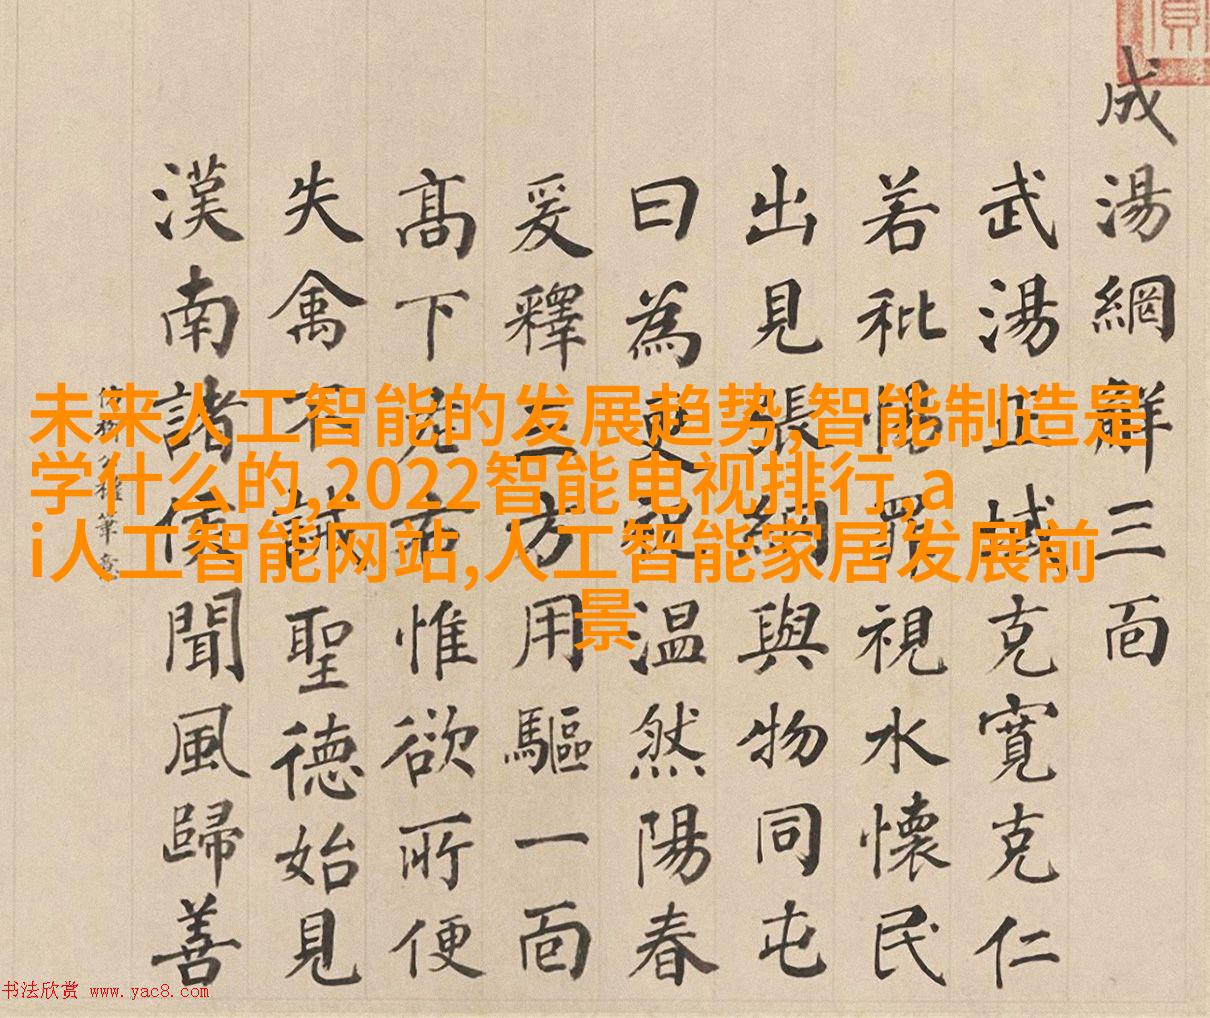 成湯網解三面
武湯正域克寬克仁
若秕罪視水懷民
出見張網與物同屯
曰為更祝温然陽春
爰釋三方用驅一面
髙下左右惟欲所便
失禽不誡聖德始見
漢南諸侯聞風歸善
仿柳公權筆意
未来人工智能的发展趋势,智能制造是
学什么的,2022智能电视排行,a
i人工智能网站,人工智能家居发展前
景
书法欣赏 www.yac8.com